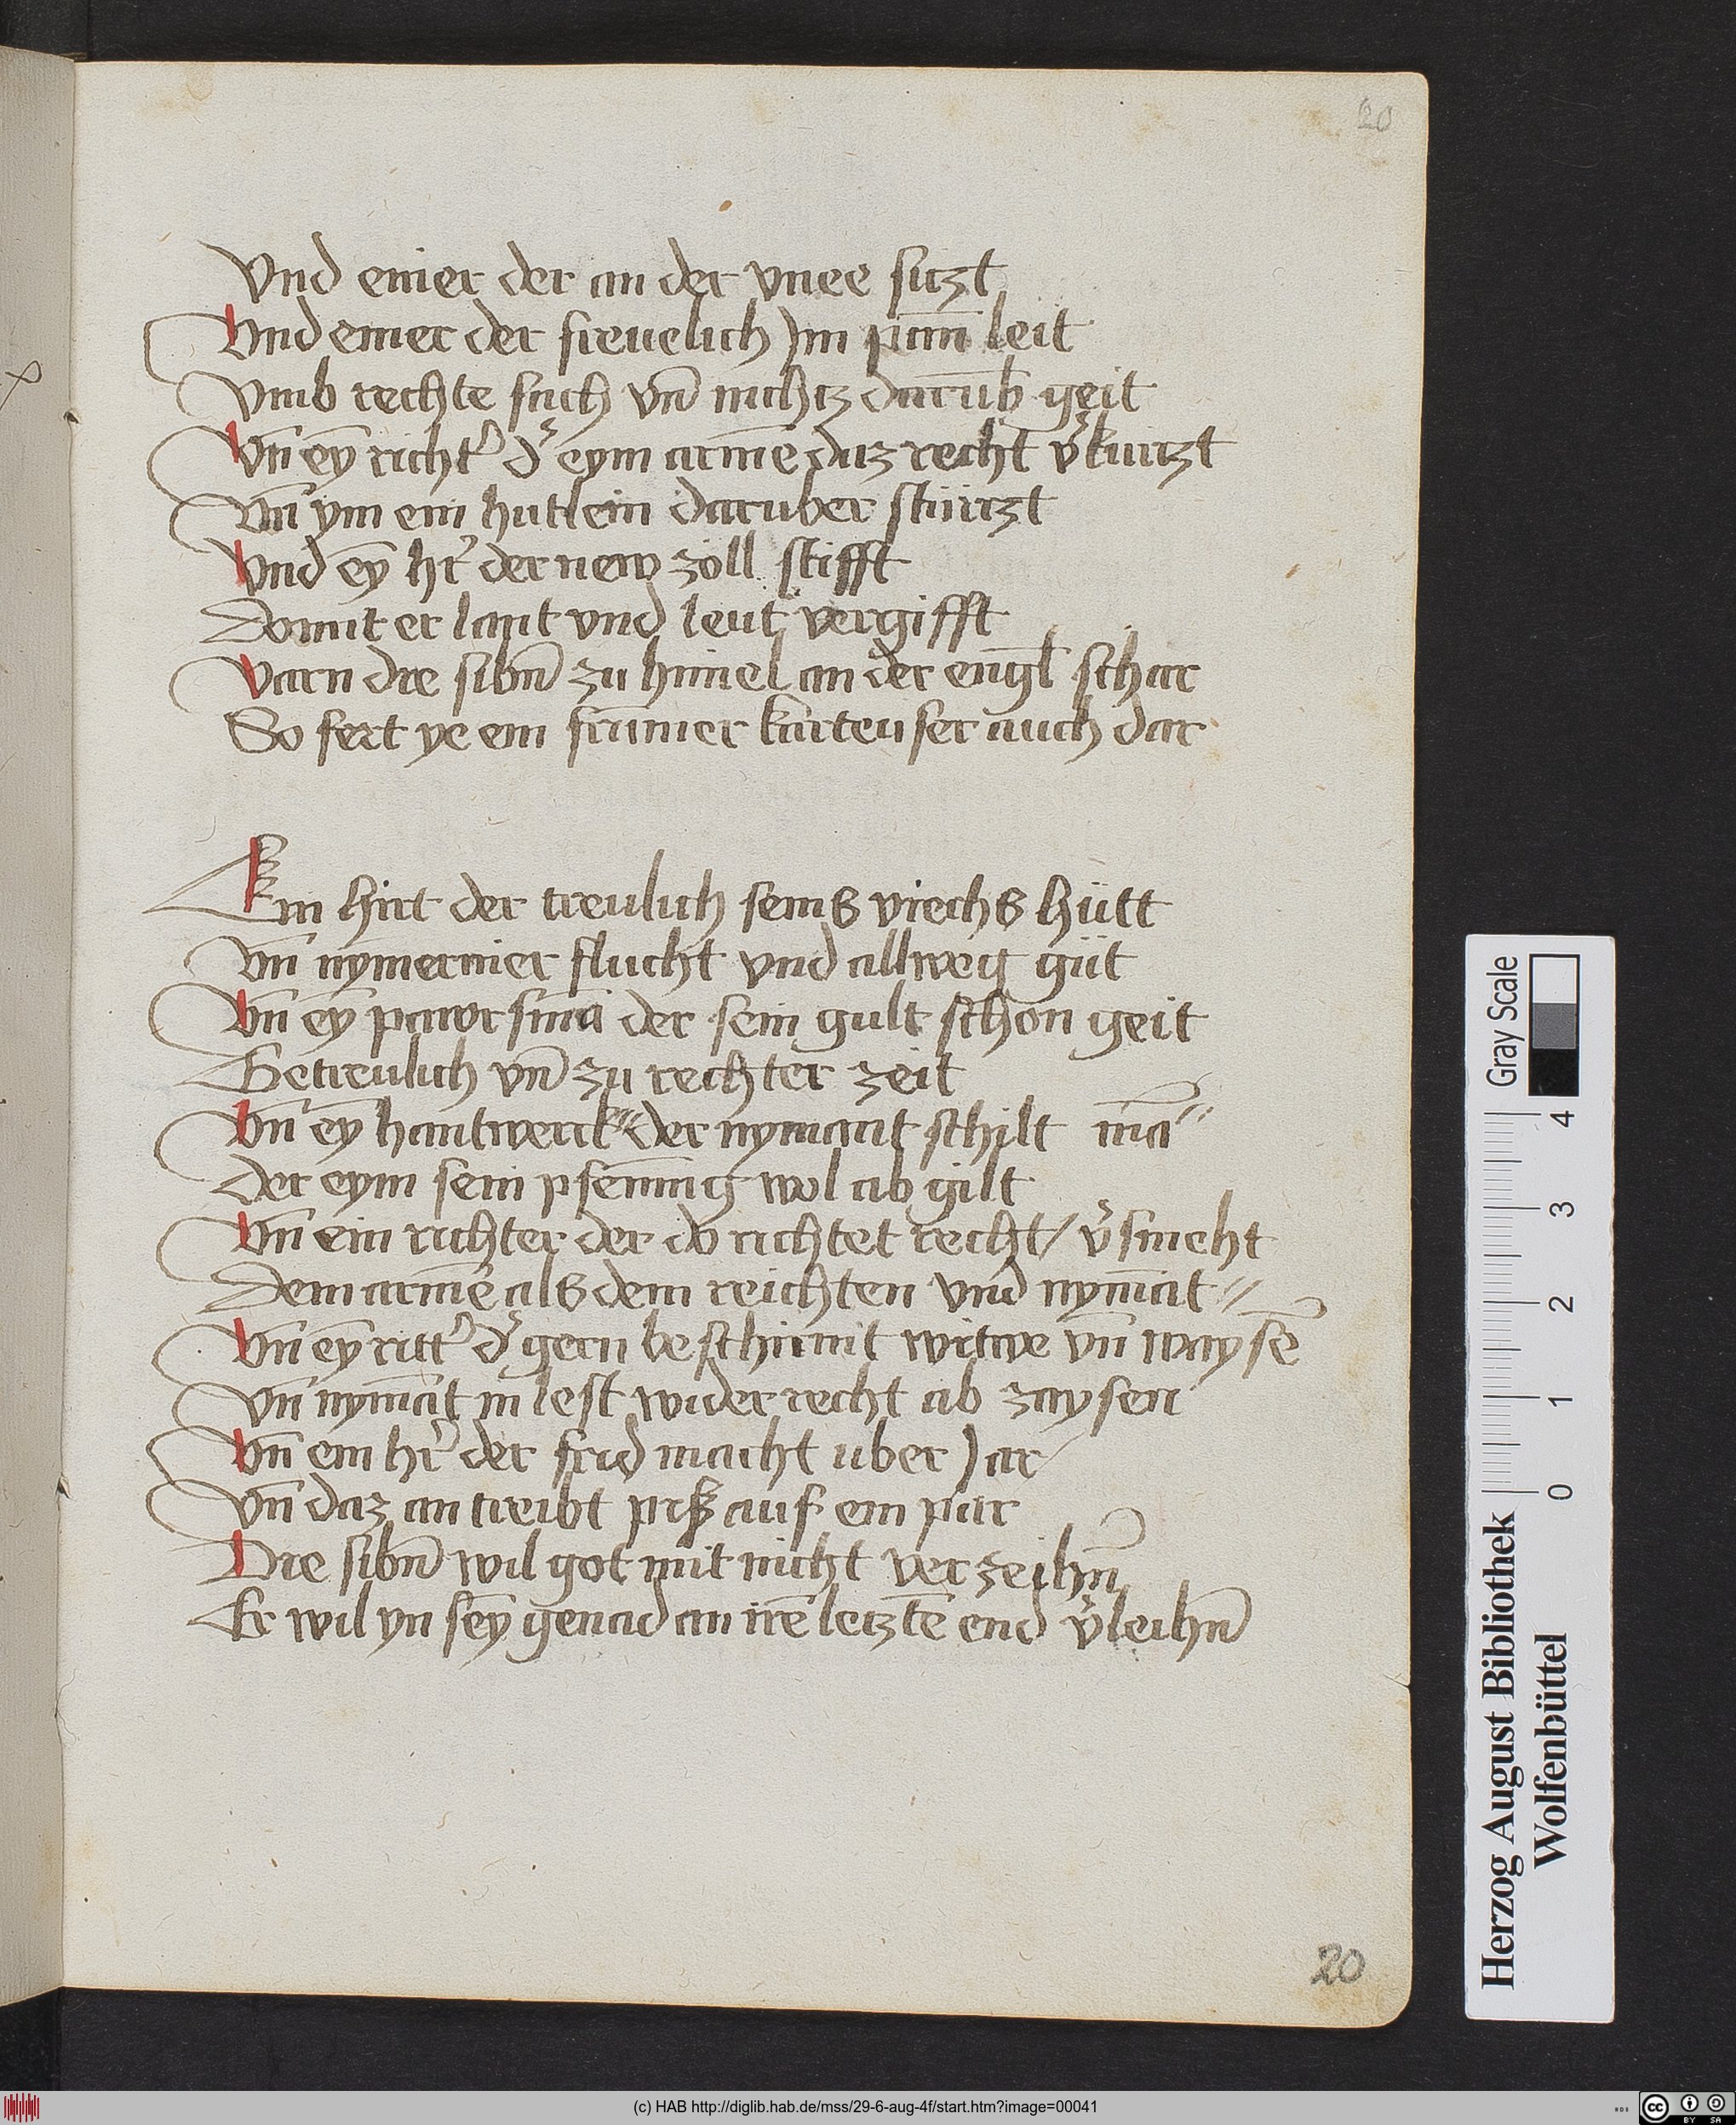 20
Vnd einer der an der vnee sitzt
Vnd einer der freuelich Jm pann leit
Vmb rechte sach vn̄ nichtz darub̄ geit
Vn̄ ey̅ richt' d' eym arme̅ daz recht v'kürtzt
Vn̄ ym ein hutlein daruber stürtzt
Vnd ey̅ hr̕ der new zöll stifft
Domit er lant vnd leut vergifft
Varn die sibn̄ zu himel an der engl̄ schar
So fert ye ein frumer karteuser auch dar
Ein hirt der treulich seins viechs hütt
Vn̄ nymermer flucht vnd allweg güt
Vn̄ ey̅ pawrsma̅ der sein gult schon geit
Getreulich vn̄ zu rechter zeit
Vn̄ ey̅ hantwerck" der nymant schilt ma̅"
der eym sein pfenning wol ab gilt
Vn̄ ein richter der do richtet recht / v'smeht
Dem arme̅ als dem reichten vnd nyma̅t "
Vn̄ ey̅ ritt' d' gern beschirmt witwe vn̄ wayse̅
Vn̄ nyma̅t in lest wider recht ab zaysen
Vn̄ ein hr̕ der frid macht uber Jar
Vn̄ daz antreibt piß auf ein par
Die sibn̄ wil got mit nicht verzeihn̄
Er wil yn sey̅ genad an ire̅ letzte̅ end v'leihn̄
20
Gray Scale
4
3
2
1
0
Herzog August Bibliothek
Wolfenbüttel
(c) HAB http://diglib.hab.de/mss/29-6-aug-4f/start.htm?image=00041
BY SA